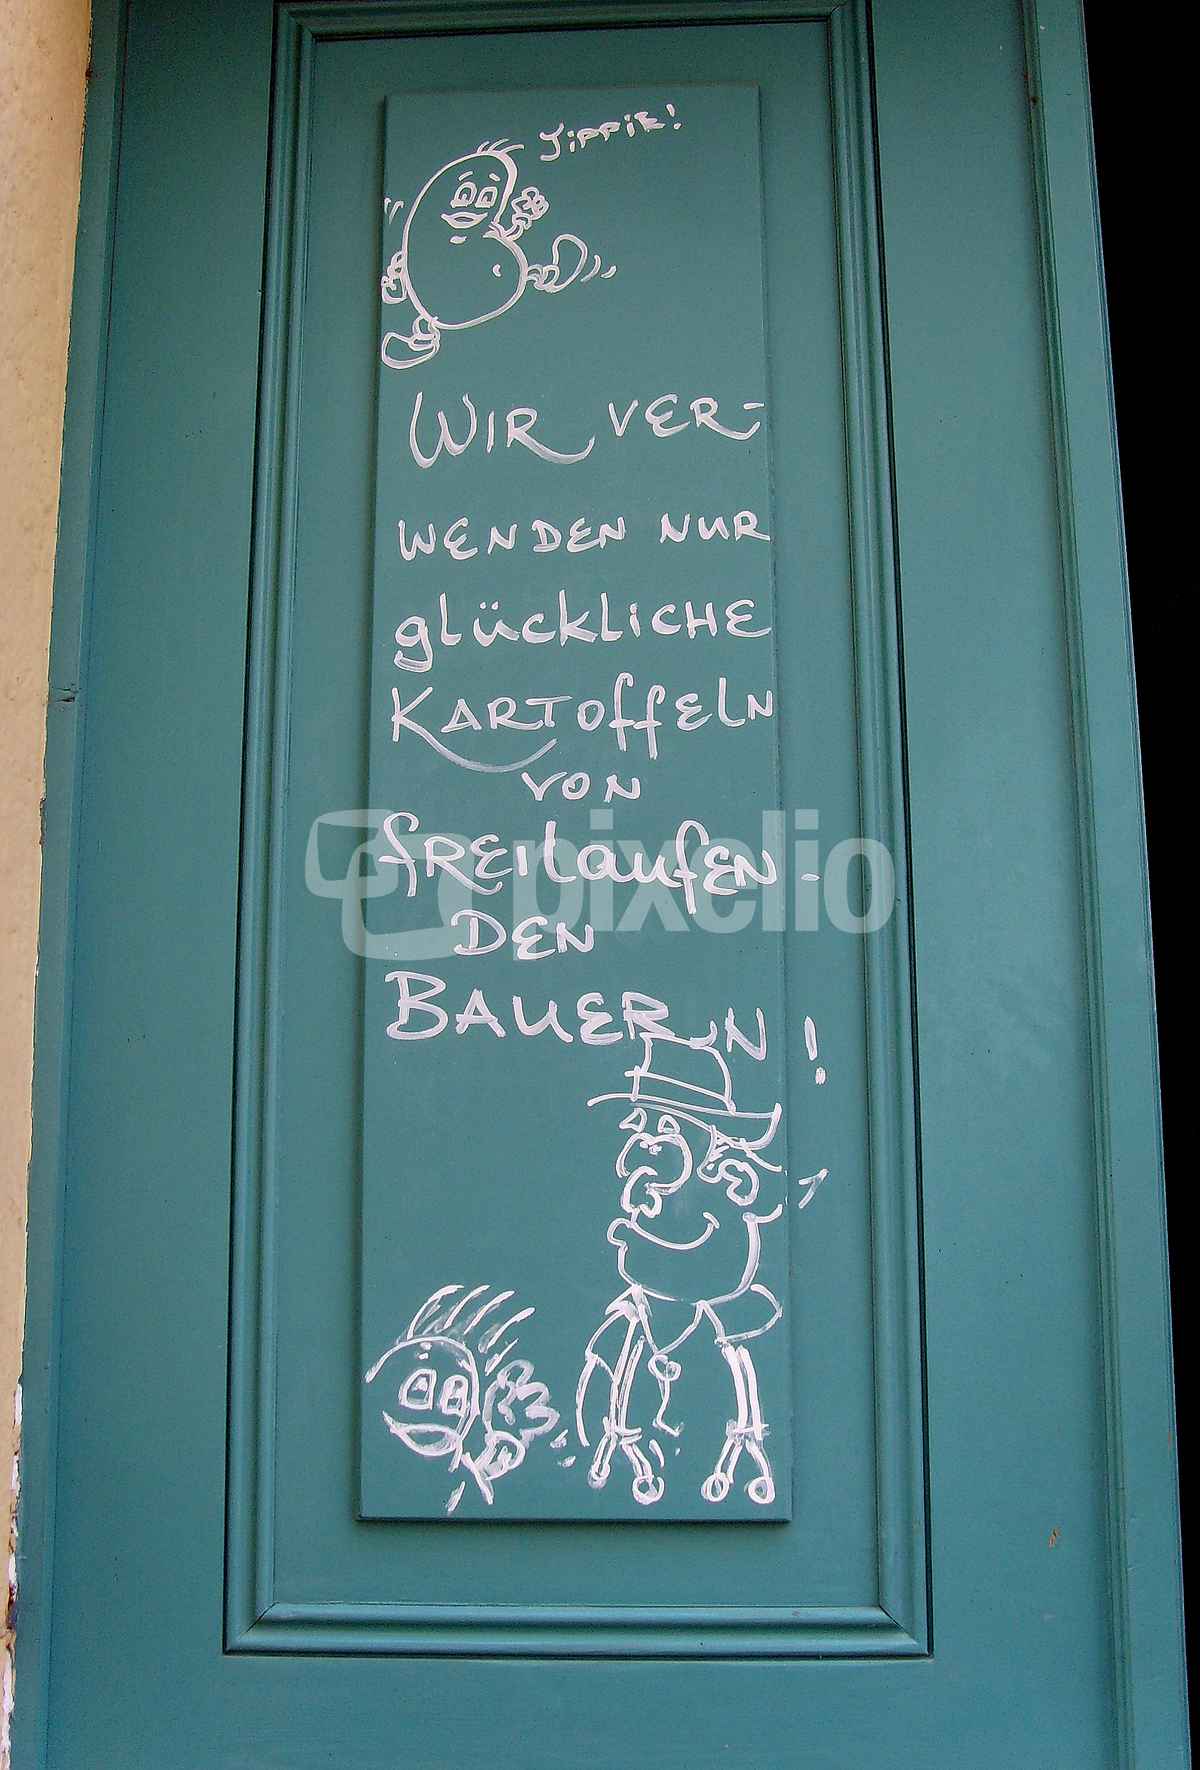 Jippie!
WIR VER-
WENDEN NUR
glückliche
KARTOffeln
VON
fREIlaufEN-
DEN
BAUERN!
pixelio